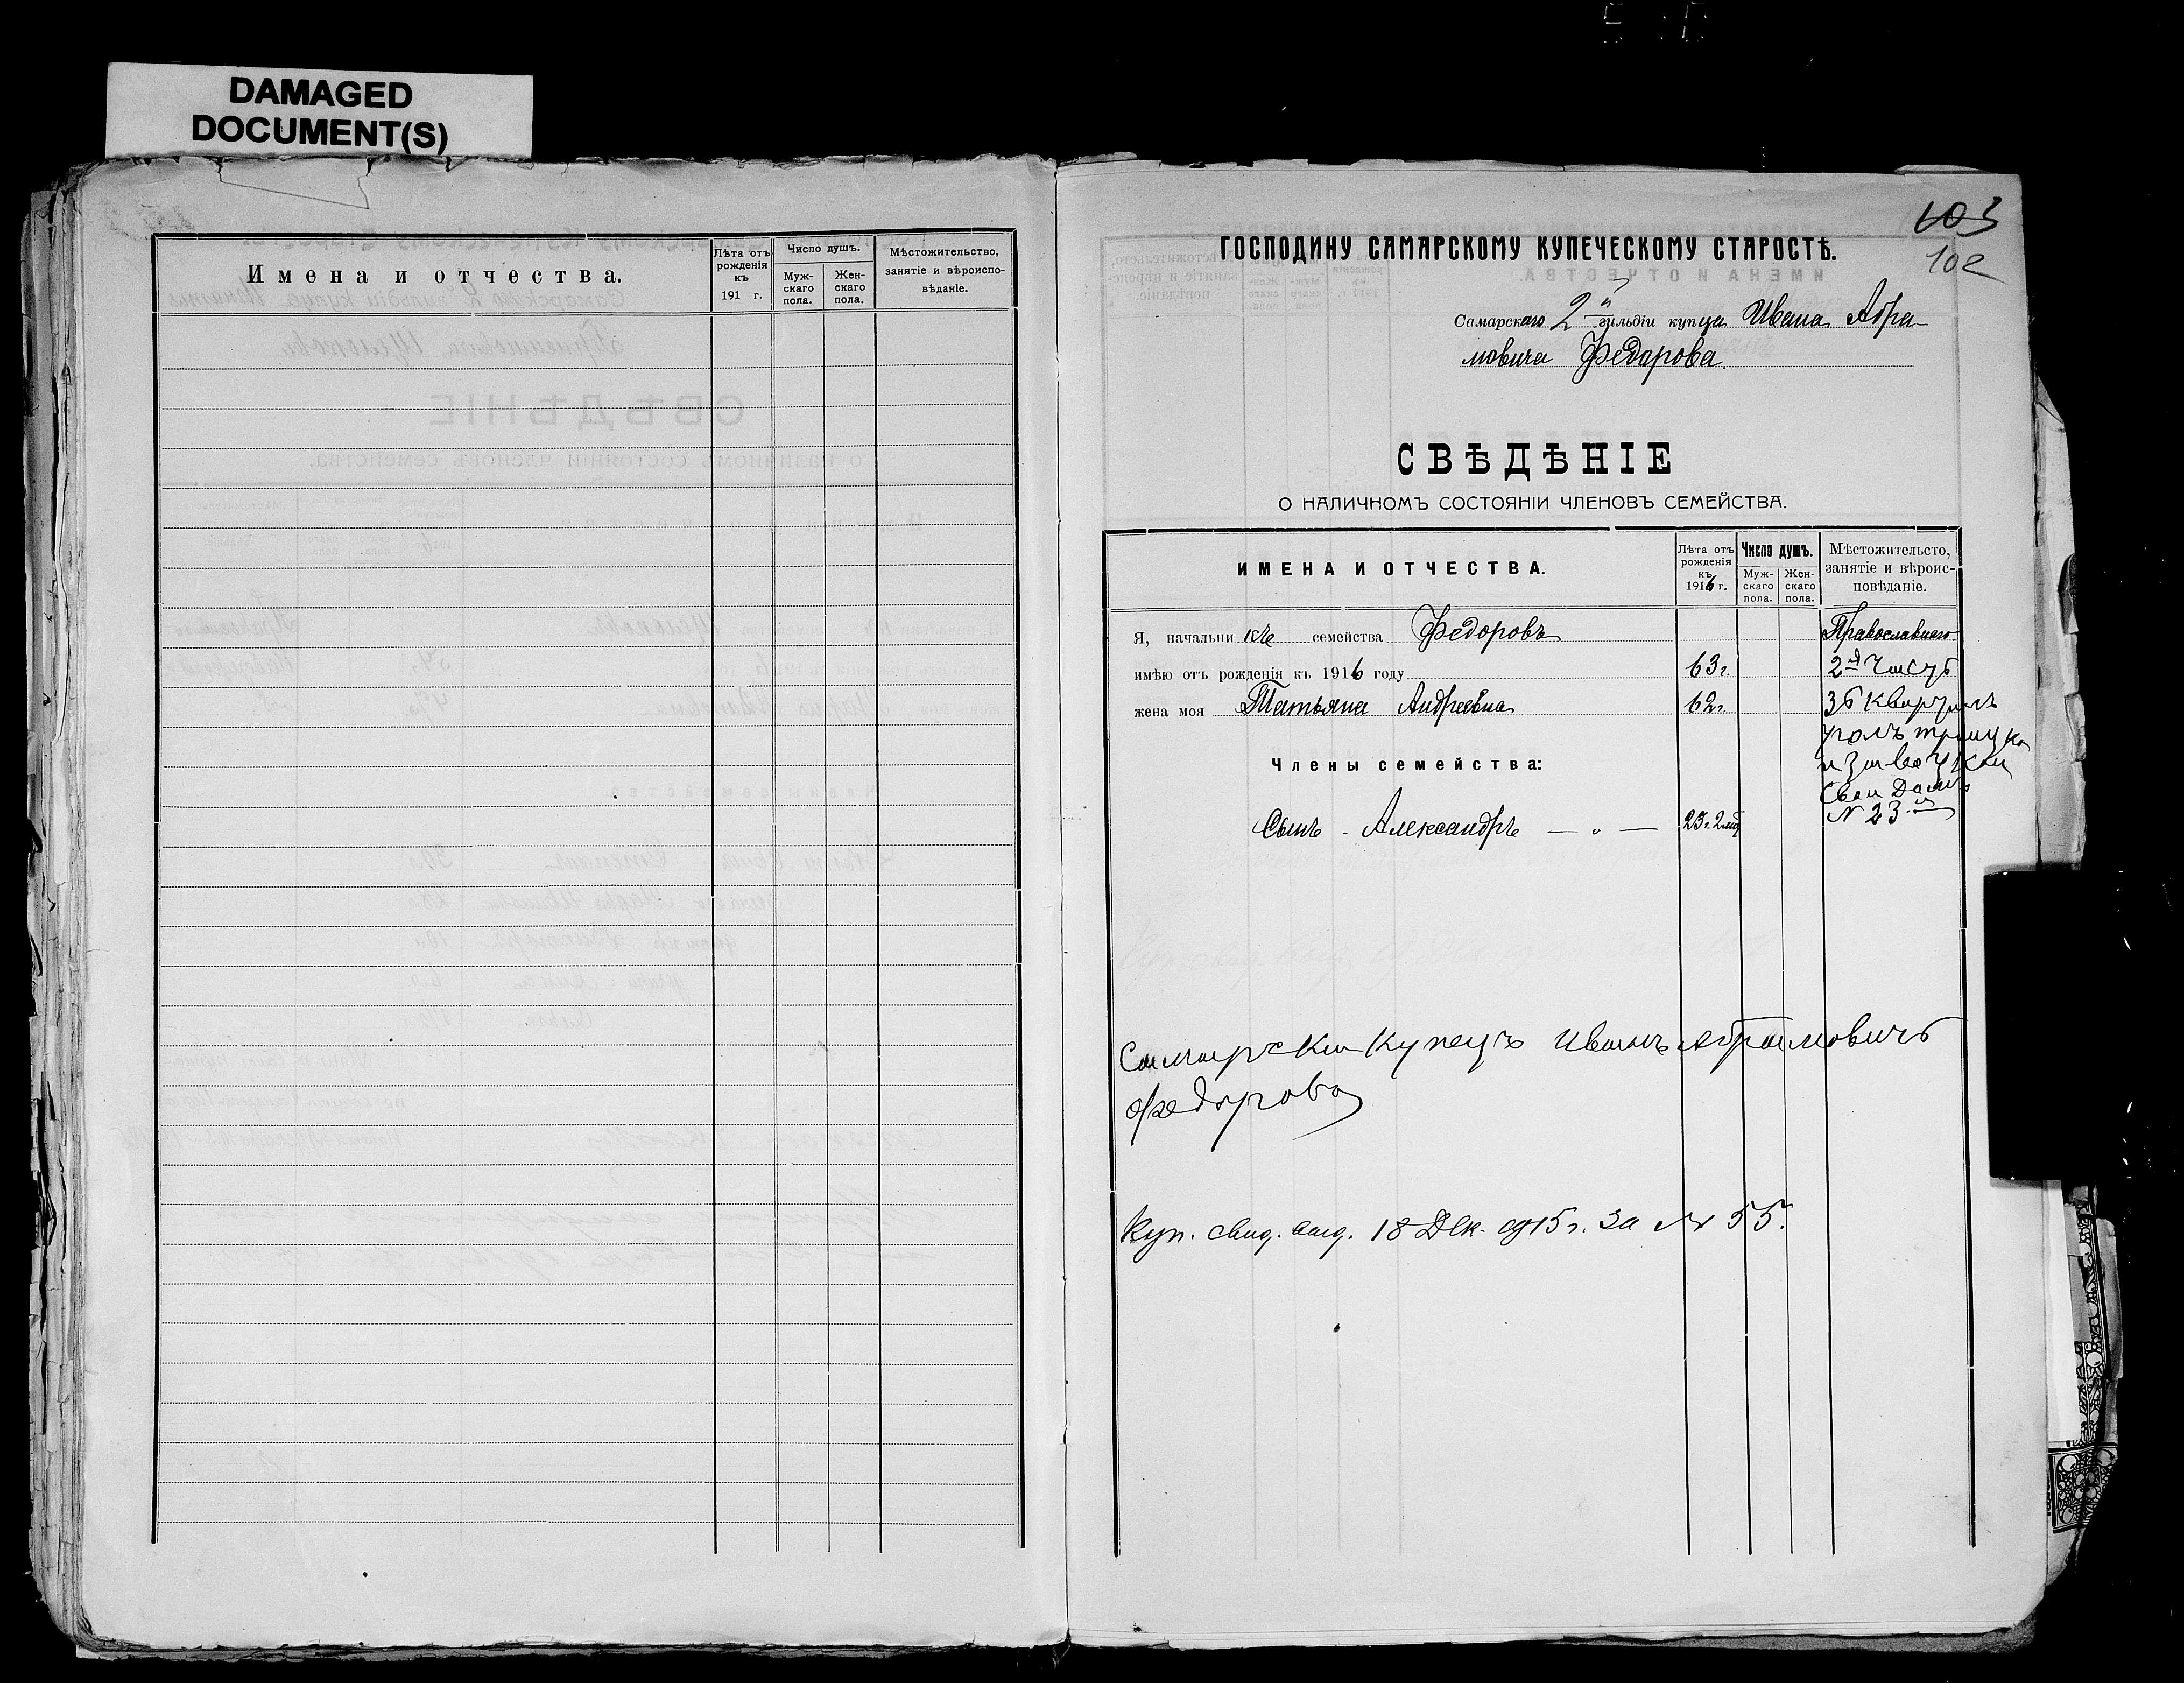 DAMAGED
DOCUMENT(S)
Имена и отчества.
Лѣта отъ рожденія къ 191 г.
Число душъ.
Муж-скаго пола.
Жен-скаго пола.
Мѣстожительство, занятіе и вѣроиспо-вѣданіе.
103
102
ГОСПОДИНУ САМАРСКОМУ КУПЕЧЕСКОМУ СТАРОСТѢ.
Самарскаго 2й гильдіи купца Ивана Абра-
мовича Федорова.
СВѢДѢНІЕ
О НАЛИЧНОМЪ СОСТОЯНІИ ЧЛЕНОВЪ СЕМЕЙСТВА.
ИМЕНА И ОТЧЕСТВА.
Лѣта отъ рожденія къ 1916 г.
Число душъ.
Муж-скаго пола.
Жен-скаго пола.
Мѣстожительсто, занятіе и вѣроис-повѣданіе.
Я, начальникъ семейства Федоровъ Православнаго
имѣю отъ рожденія къ 1916 году 63 г. 2й часть
жена моя Татьяна Андреевна 62 г. 36 кварталъ
уголъ троицка
Члены семейства:
свои Домъ
Сынъ - Александръ — „ — 23 г. N 23
Самарски Купецъ Иванъ Абрамовичъ
Федорова
Куп. свид. выд. 18 Дек. 915 г. за № 55.